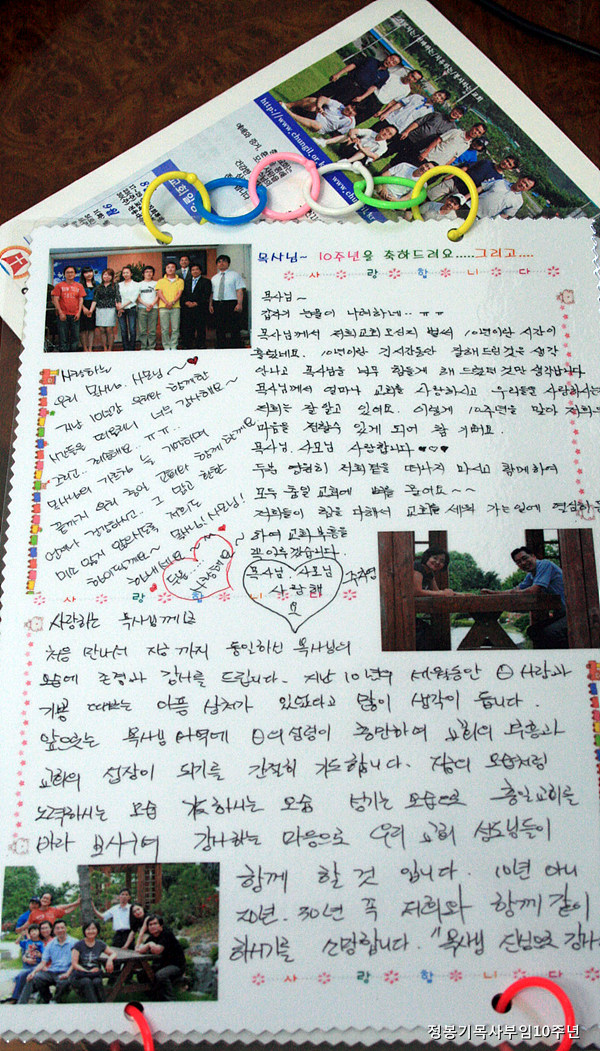 http://www.chungil.or.k
http://www.chungil.or.kr
교회일
9월
목사님~ 10주년을 축하드려요.....그리고....
사 랑 합 니 다
목사님~
갑자기 눈물이 나려하네.. ㅠㅠ
목사님께서 저희교회 오신지 벌써 10년이란 시간이
흘렀네요. 10년이란 긴시간동안 잘해드린것은 생각
안나고 목사님을 너무 힘들게 해 드렸던 것만 생각납니다
목사님께서 얼마나 교회를 사랑하시고 우리들을 사랑하시는
저희는 잘 알고 있어요. 이렇게 10주년을 맞아 저희의
마음을 전할수 있게 되어 참 기뻐요.
목사님. 사모님 사랑합니다 ♥♥♥
두분 영원히 저희곁을 떠나지 마시고 함께하여
모두 충일 교회에 뼈를 묻어요~~
저희들이 힘을 다해서 교회를 세워 가는일에 열심
하여 교회 부흥을
꼭 이루겠습니다.
목사님. 사모님
사랑해
요
사랑하는
우리 목사님. 사모님~ ♥
지난 10년간 우리와 함께한
시간들을 떠올리니 너무 감사해요~
그리고.. 죄송해요. ㅠㅠ..
목사님의 가르침 늘 기억하며
끝까지 우리 충일 교회와 함께 하게요
언제나 건강하시고.. 그 맑고 환한
미소 잃지 않으시도록 저희도
목사님! 사모님!
사랑해요
사 랑 합 니 다
사랑하는 목사님께
처음 만나서 지금 까지 동일하신 목사님의
모습에 존경과 감사를 드립니다. 지난 10년의 세월동안 사랑과
기쁨 때로는 아픔 상처가 있었다고 많이 생각이 듭니다.
앞으로는 목사님 사역에 성령이 충만하여 교회의 부흥과
교회의 성장이 되기를 간절히 기도합니다. 지금의 모습처럼
노력하시는 모습 하시는 모습 섬기는 모습으로 충일교회를
바라 보시구여 감사하는 마음으로 우리 교회 성도님들이
함께 할 것 입니다. 10년 아니
20년. 30년 꼭 저희와 함께 같이
하시기를 소망합니다. "목사님 진심으로 감사
사 랑 합 니 다
정봉기목사부임10주년